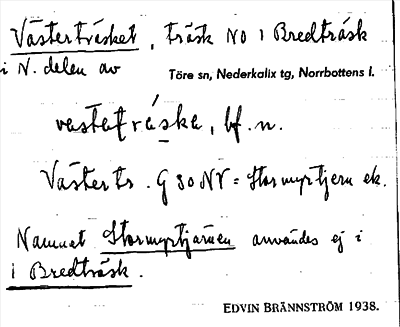 Västerträsket, träsk NO i Bredträsk
i N. delen av Töre sn, Nederkalix tg, Norrbottens l.
vestetrȧ́ska, bf. n.
Västertr. G 30 NV = Stormyrtjern ek.
Namnet Stormyrtjärnen användes ej i
i Bredträsk.
EDVIN BRÄNNSTRÖM 1938.